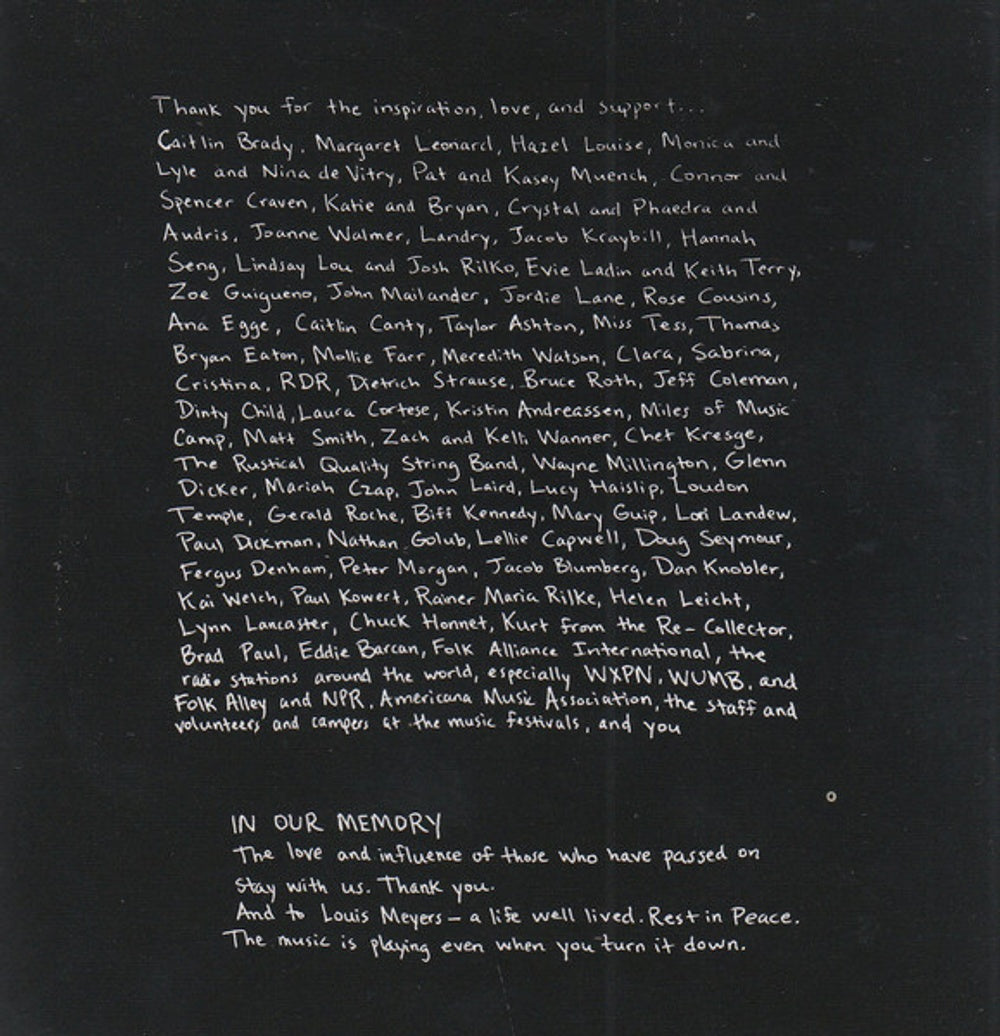 Thank you for the inspiration, love, and support...
Caitlin Brady, Margaret Leonard, Hazel Louise, Monica and
Lyle and Nina de Vitry, Pat and Kasey Muench, Connor and
Spencer Craven, Katie and Bryan, Crystal and Phaedra and
Audris, Joanne Walmer, Landry, Jacob Kraybill, Hannah
Seng, Lindsay Lou and Josh Rilko, Evie Ladin and Keith Terry,
Zoe Guigueno, John Mailander, Jordie Lane, Rose Cousins,
Ana Egge, Caitlin Canty, Taylor Ashton, Miss Tess, Thomas
Bryan Eaton, Mollie Farr, Meredith Watson, Clara, Sabrina,
Cristina, RDR, Dietrich Strause, Bruce Roth, Jeff Coleman,
Dinty Child, Laura Cortese, Kristin Andreassen, Miles of Music
Camp, Matt Smith, Zach and Kelli Wanner, Chet Kresge,
The Rustical Quality String Band, Wayne Millington, Glenn
Dicker, Mariah Czap, John Laird, Lucy Haislip, Loudon
Temple, Gerald Roche, Biff Kennedy, Mary Guip, Lori Landew,
Paul Dickman, Nathan Golub, Lellie Capwell, Doug Seymour,
Fergus Denham, Peter Morgan, Jacob Blumberg, Dan Knobler,
Kai Welch, Paul Kowert, Rainer Maria Rilke, Helen Leicht,
Lynn Lancaster, Chuck Honnet, Kurt from the Re-Collector,
Brad Paul, Eddie Barcan, Folk Alliance International, the
radio stations around the world, especially WXPN, WUMB, and
Folk Alley and NPR, Americana Music Association, the staff and
volunteers and campers at the music festivals, and you
IN OUR MEMORY
The love and influence of those who have passed on
stay with us. Thank you.
And to Louis Meyers – a life well lived. Rest in Peace.
The music is playing even when you turn it down.